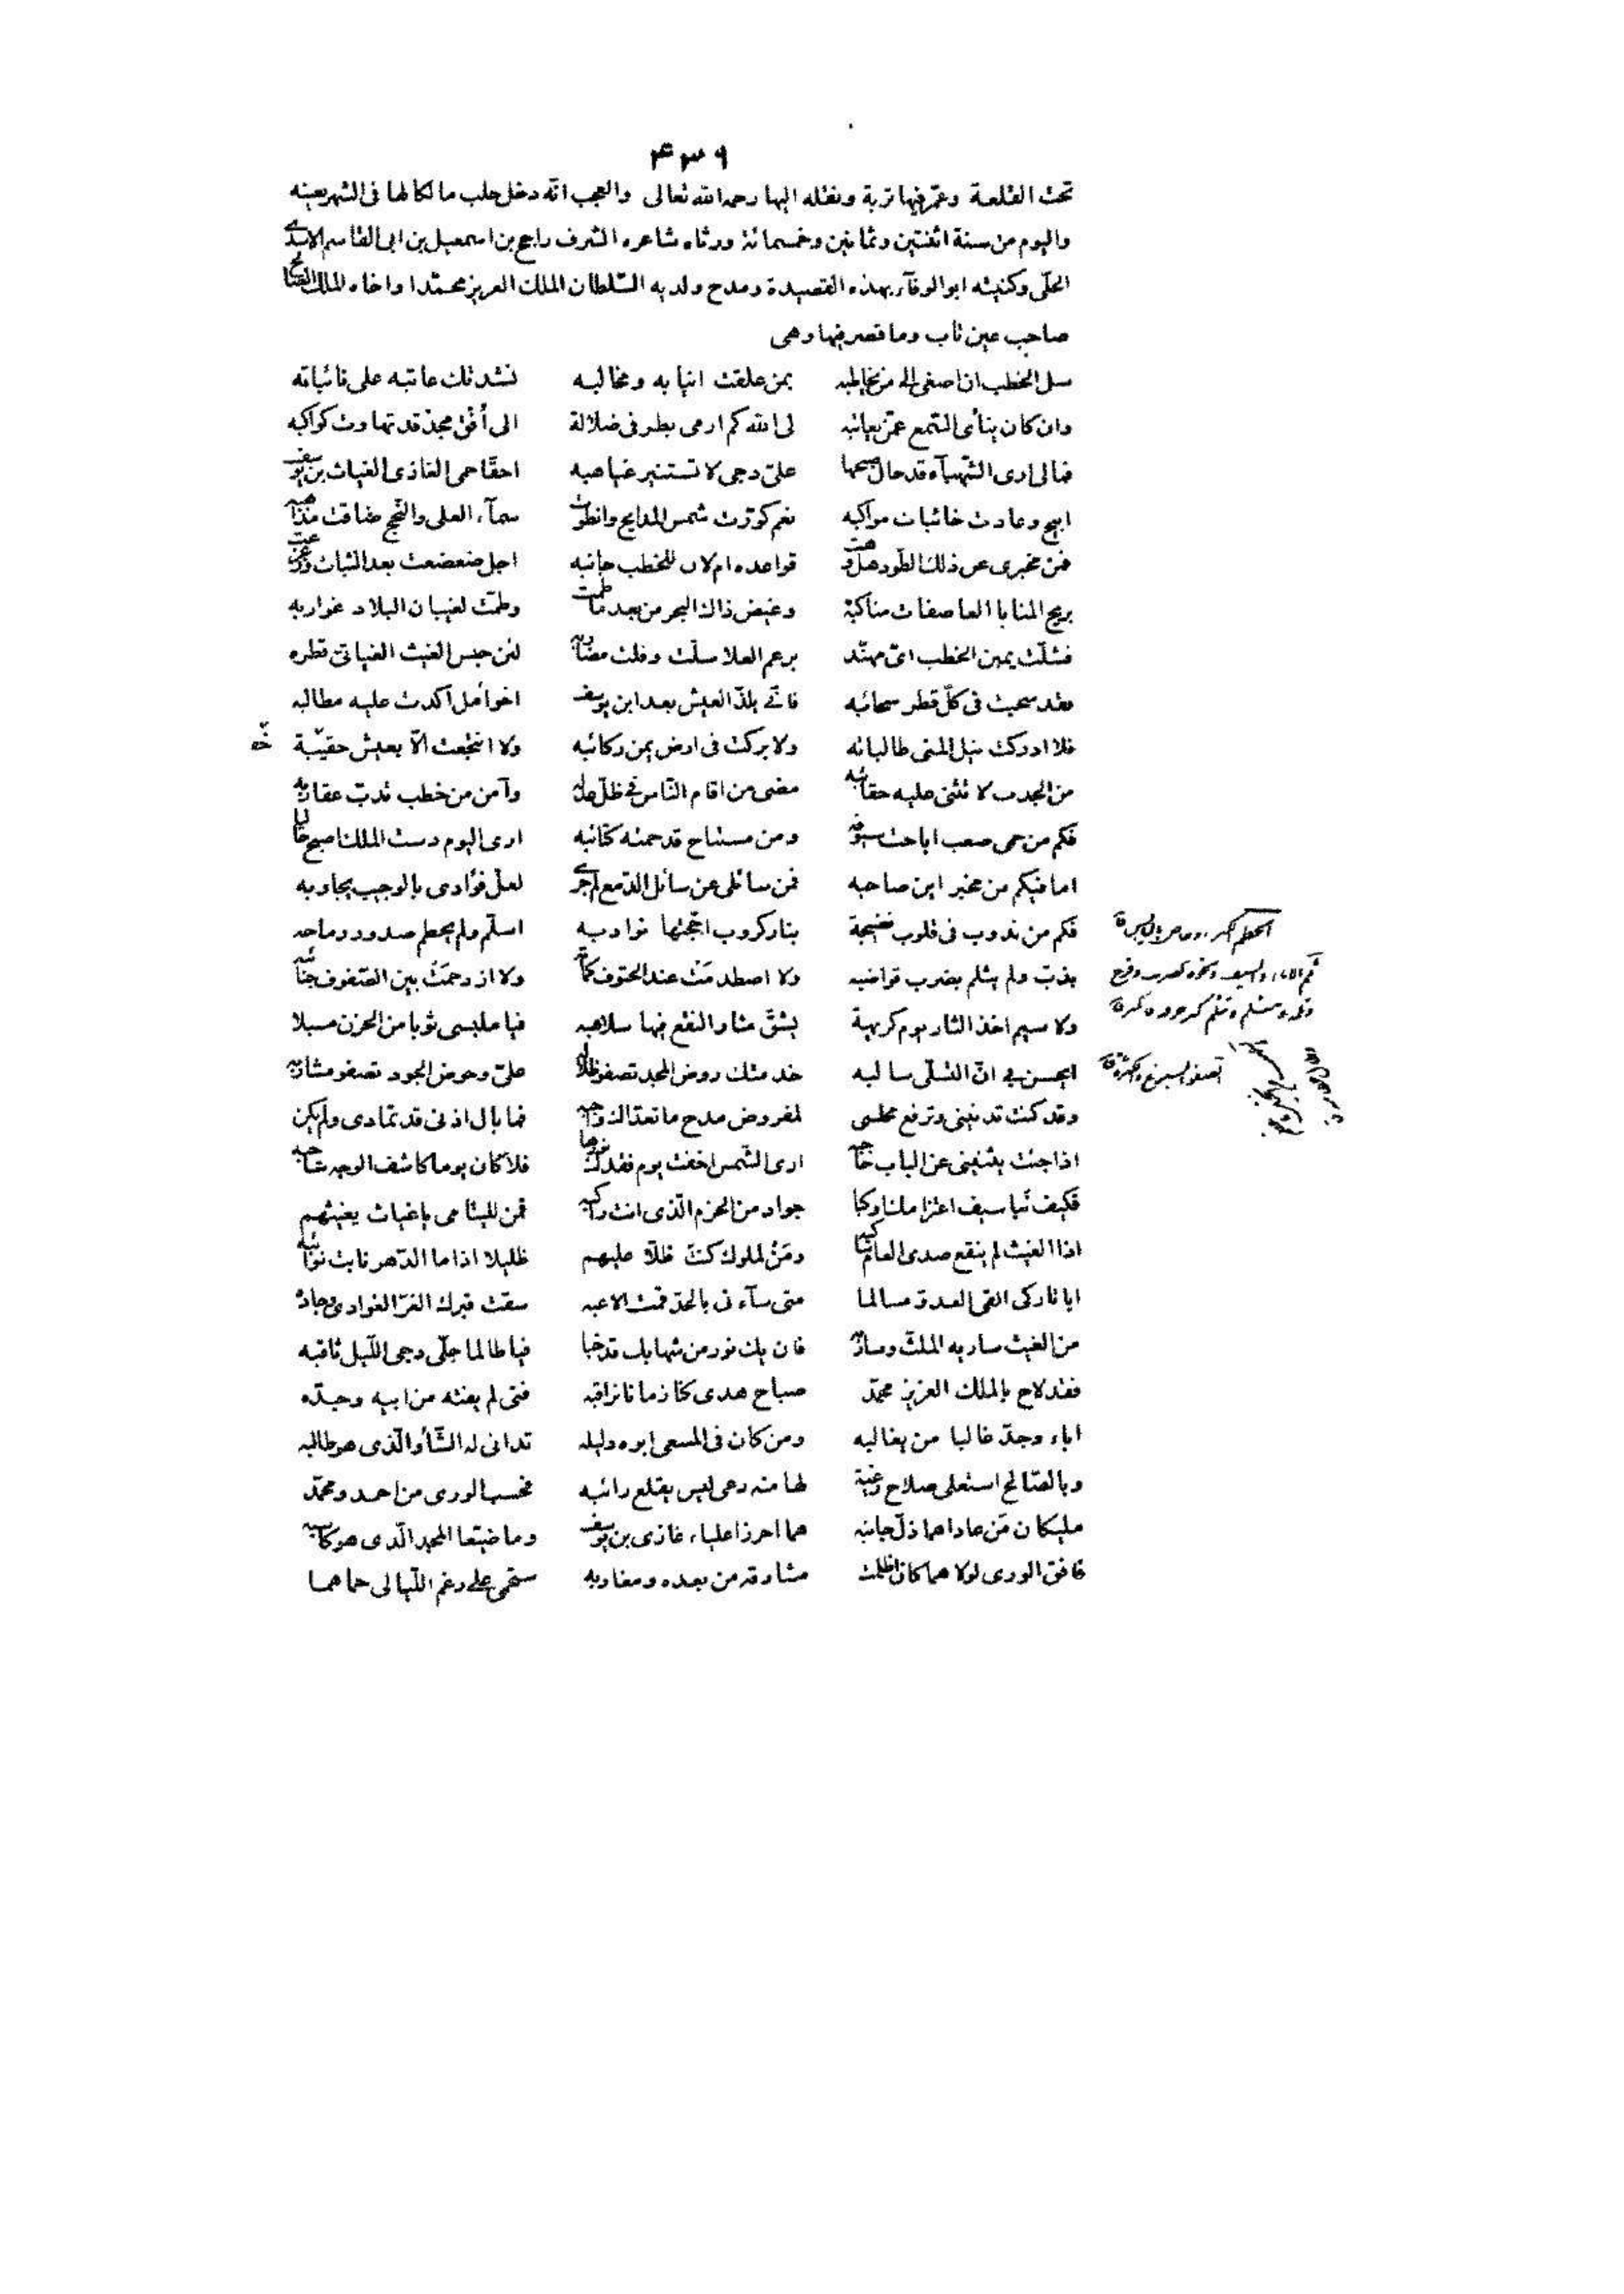 ٤٣٩
تحت القلعة وعمّر فيها تربة ونقله اليها رحمه الله تعالى والعجب انّه دخل حلب مالكا لها فى الشهر بعينه
واليوم من سنة اثنتين وثمانين وخمسمائة ورثاه شاعره الشرف راجح بن اسمعيل بن ابى القاسم الاسدى
الحلّى وكنيته ابو الوفآء بهذه القصيدة ومدح ولديه السّلطان الملك العزيز محمّدا واخاه الملك الصالح
صاحب عين تاب وما قصر فيها وهى
سل الخطب ان اصغى الى من يخاطبه بمن علقت انيابه ومخالبه نشدتك عاتبه على نائباته
وان كان ينأى السّمع عمّن يعاتبه لى الله كم ارمى بطرفى ضلالة الى أفق مجد قد تهاوت كواكبه
فمالى ارى الشّهبآء قد حال صبحها علىّ دجى لا تستنير غياهبه احقّا حمى الغازى الغياث بن يوسف
ابيح وعادت خائبات مواكبه نعم كوّرت شمس المدايح وانطوت سمآء العلى والنّجح ضاقت مذاهبه
فمن مخبرى عن ذلك الطّود هل وهت قواعده ام لان للخطب جانبه اجل ضعضعت بعد الثبات وزعزعت
بريح المنايا العاصفات مناكبه وغيض ذاك البحر من بعد ما طمت وطمّت لغيبان البلاد غواربه
فشلّت يمين الخطب اىّ مهنّد برغم العلا سلّت وفلت مضاربه لئن حبس الغيث الغياثىّ قطره
فقد سحبت فى كلّ قطر سحائبه فانّى يلذّ العيش بعد ابن يوسف اخو أمل اكدت عليه مطالبه
فلا ادركت نيل المنى طالباته ولا بركت فى ارض يمن ركائبه ولا انتجعت الّا بعيش حقيبة
من الجدب لا تثنى عليه حقائبه مضى من اقام النّاس فى ظلّ عدله وآمن من خطب تدبّ عقاربه
فكم من حمى صعب اباحت سيوفه ومن مستباح قد حمته كتائبه ارى اليوم دست الملك اصبح خاليا
اما فيكم من مخبر اين صاحبه فمن سائلى عن سائل الدّمع لم جرى لعلّ فؤادى بالوجيب يجاوبه
فكم من ندوب فى قلوب نضيجة بنار كروب اجّجتها نوادبه اسلّم ولم يحطم صدور رماحه
بذبّ ولم يثلم بضرب قواضبه ولا اصطدمت عند الحتوف كماته ولا ازدحمت بين الصّفوف جنائبه
ولا سيم اخذ الثار يوم كريهة يشقّ مثار النقع فيها سلاهبه فيا ملبسى ثوبا من الحزن مسبلا
ايحسن بى انّ التسلّى سالبه خدمتك روض المجد تصفو ظلاله علىّ وحوض الجود تصفو مشاربه
وقد كنت تدنينى وترفع مجلسى لمفروض مدح ما تعدّاك واجبه فما بال اذنى قد تمادى ولم يكن
اذا جئت يثنينى عن الباب حاجبه ارى الشمس اخفت يوم فقدك نورها فلا كان يوما كاشف الوجه شاحبه
فكيف نبا سيف اعتزامك او كبا جواد من الحزم الّذى انت راكبه فمن لليتامى يا غياث يغيثهم
اذا الغيث لم ينقع صدى العام ساكبه ومن للملوك كنت ظلّا عليهم ظليلا اذا ما الدّهر نابت نوائبه
ايا تاركى القى العدوّ مسالما متى سآءنى بالجدّ قمت الاعبه سقت قبرك الغرّ الغوادى وجاده
من الغيث ساريه الملثّ وساربه فان يك نور من شهابك قد خبا فيا طالما جلّى دجى اللّيل ثاقبه
فقد لاح بالملك العزيز محمّد صباح هدى كنّا زمانا نراقبه فتى لم يفته من ابيه وجدّه
اباء وجدّ غالبا من يغالبه ومن كان فى المسعى ابوه دليله تدانى له الشّأو الّذى هو طالبه
وبالصّالح استعلى صلاح رعيّة لها منه رعى ليس يقلع راتبه فحسب الورى من احمد ومحمّد
مليكان من عاداهما ذلّ جانبه هما احرزا علياء غازى بن يوسف وما ضيّعا المجد الّذى هو كاسبه
فافق الورى لولاهما كان اظلمت مشارقه من بعده ومغاربه ستحمى على رغم اللّيالى حماهما